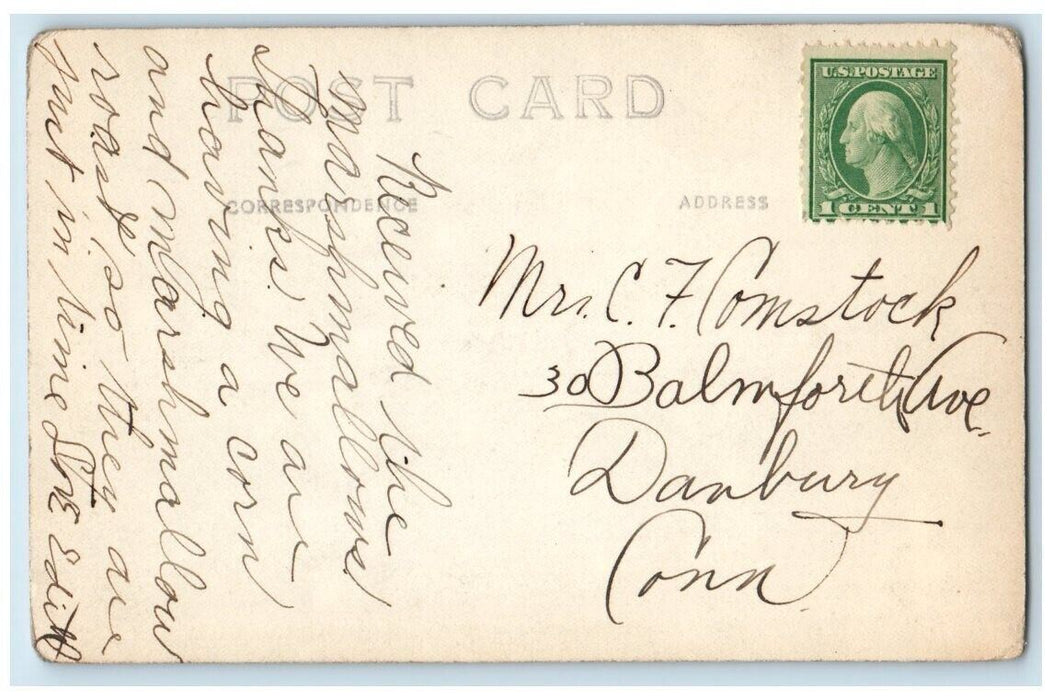 POST CARD
CORRESPONDENCE
ADDRESS
U.S. POSTAGE
1 CENT 1
Received the
marshmallows
Thanks. We are
having a corn
and marshmallow
roast so they are
just in time Edith
Mrs. C. F. Comstock
30 Balmforth Ave.
Danbury
Conn